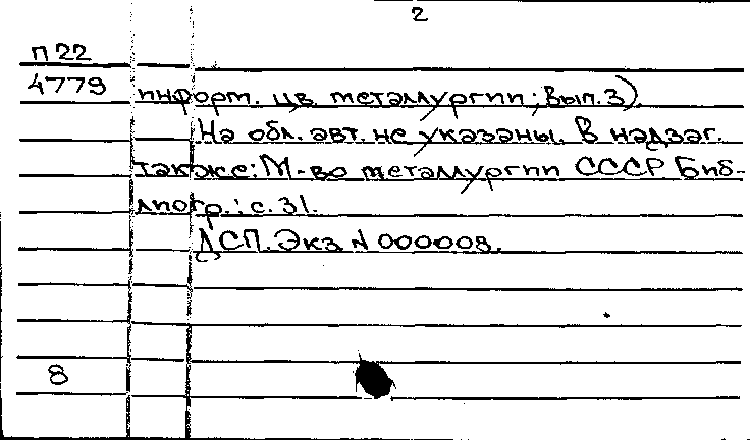 2
П 22
4779
информ. цв. металлургии; Вып. 3).
На обл. авт. не указаны. В надзаг.
также: М-во металлургии СССР. Биб-
лиогр.: с. 31.
ДСП. Экз N 000008.
8